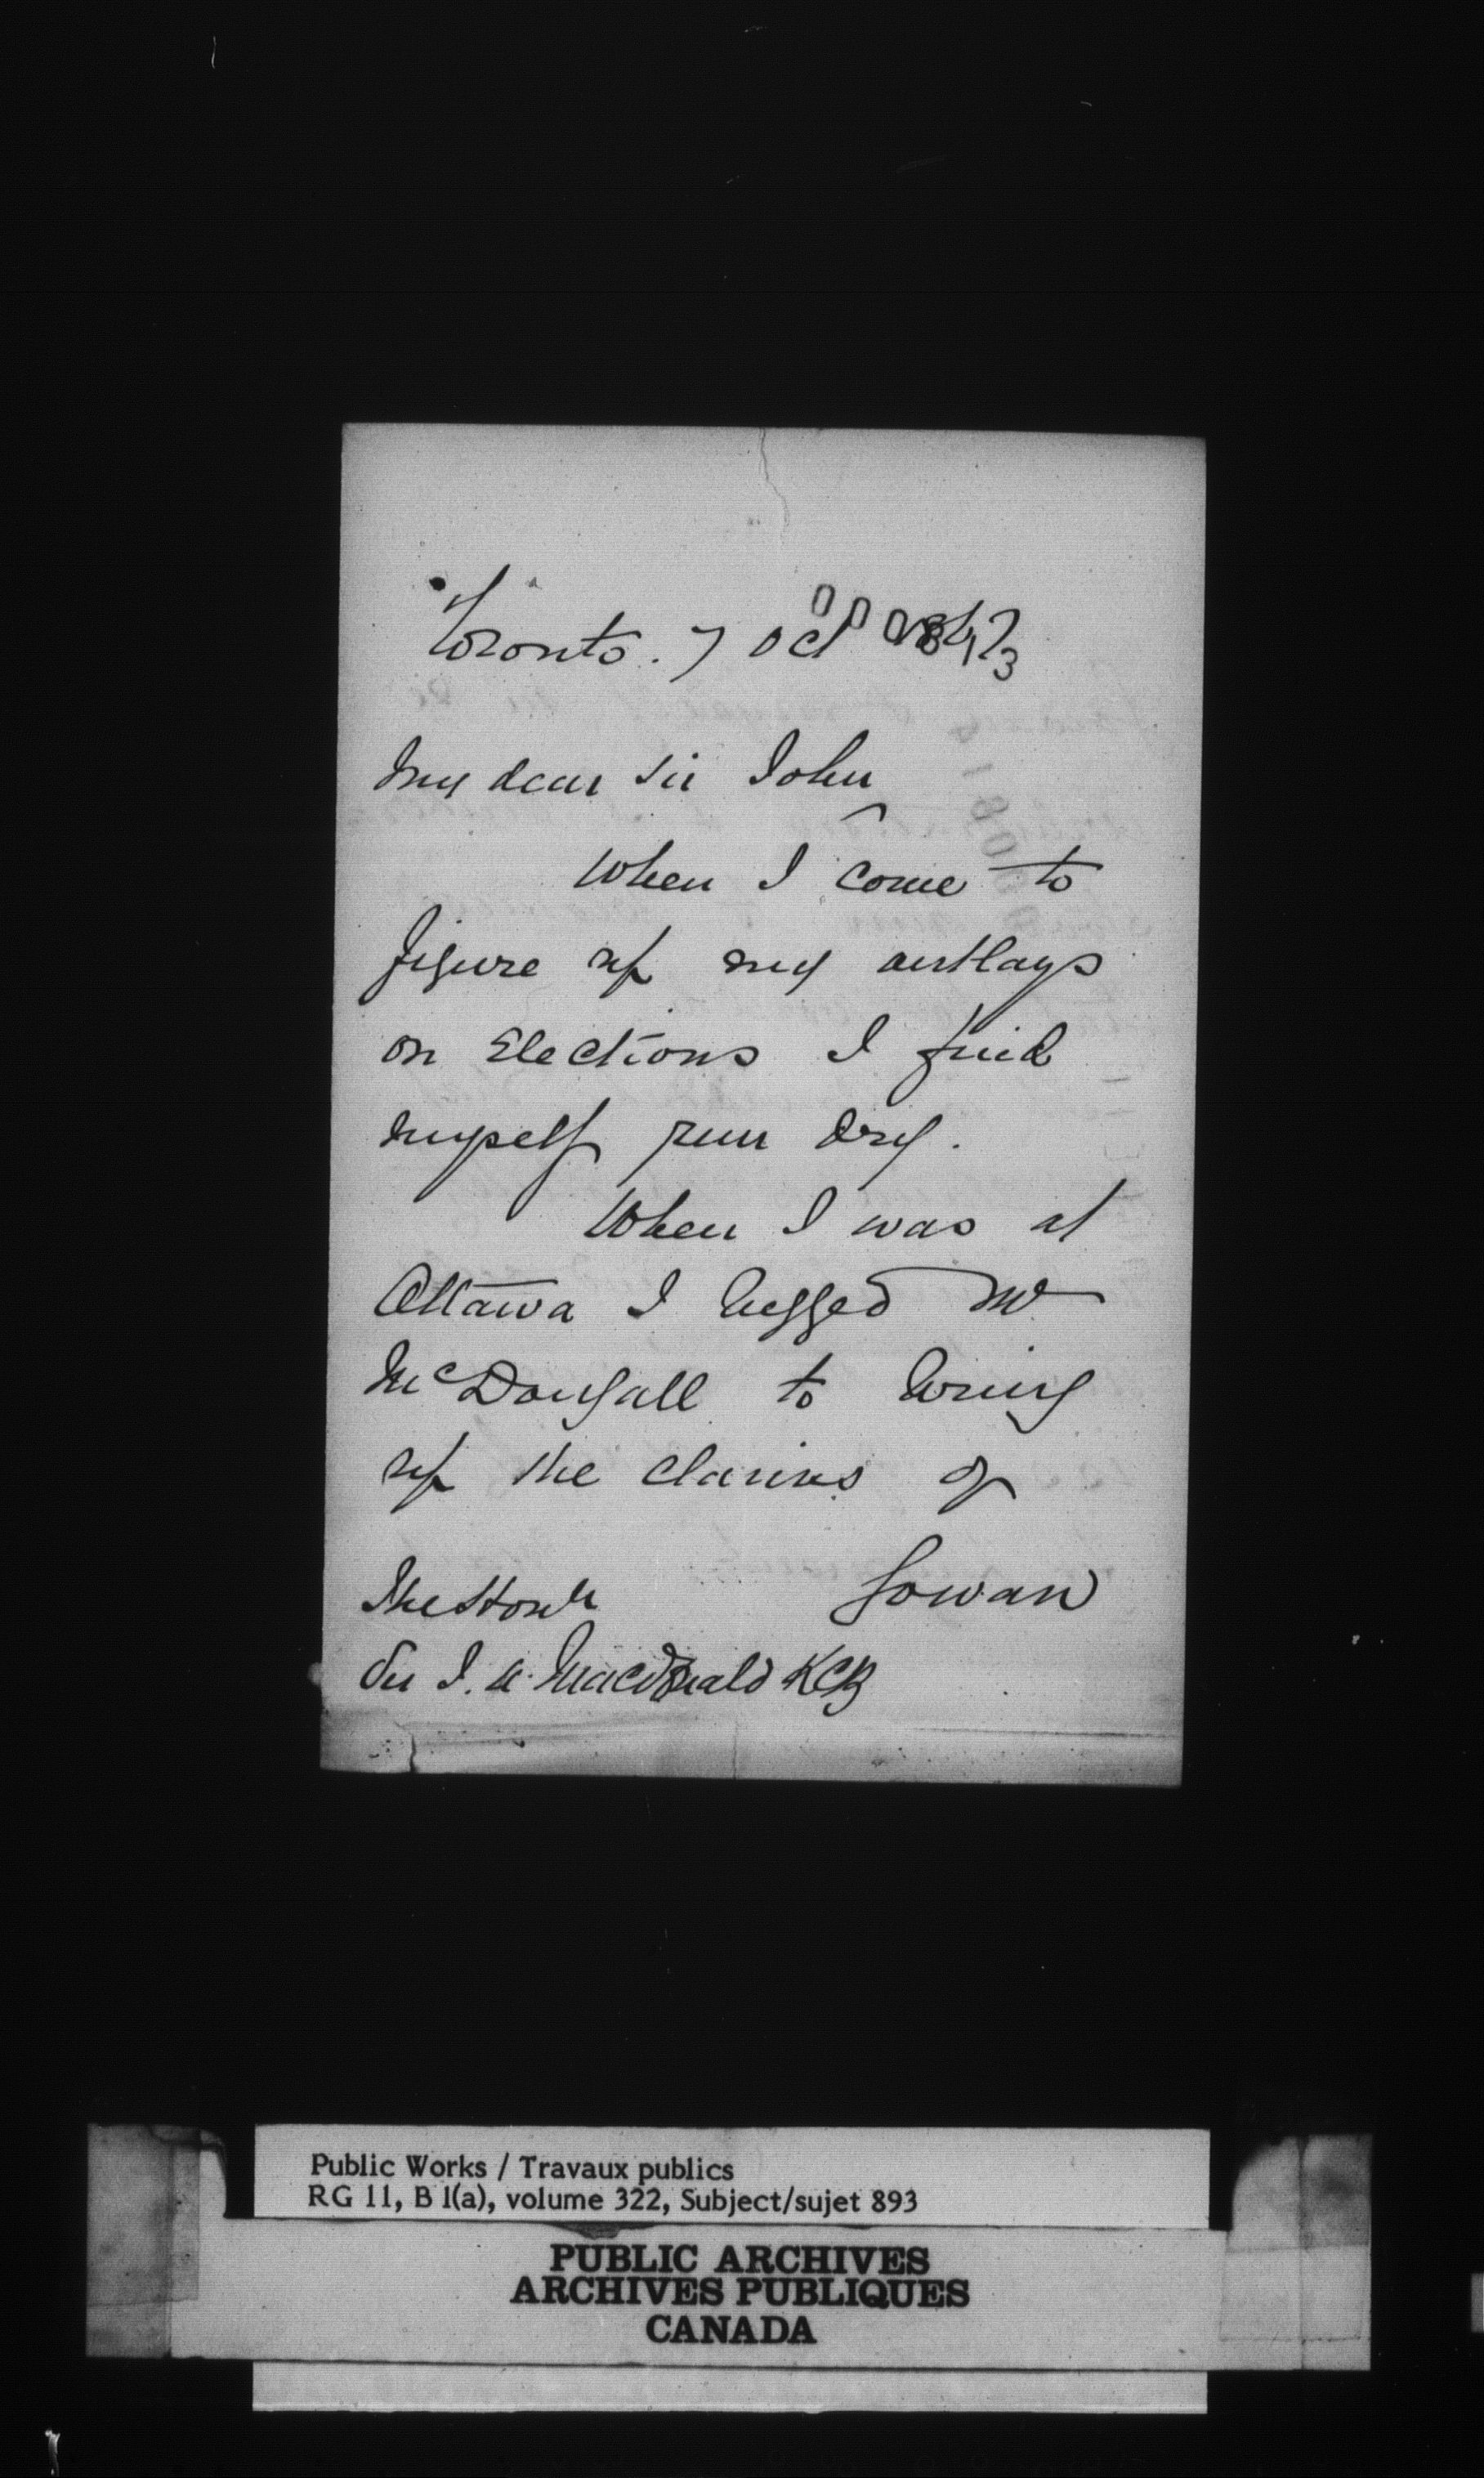 Toronto. 7 Oct
My dear Sir John
When I come to
figure up my outlays
on Elections I find
myself run dry.
When I was at
Ottawa I begged Mr
McDougall to bring
up the claims of
Gowan
The Honl
Sir J. A. Macdonald KCB
Public Works / Travaux publics
RG 11, B 1(a), volume 322, Subject/sujet 893
PUBLIC ARCHIVES
ARCHIVES PUBLIQUES
CANADA